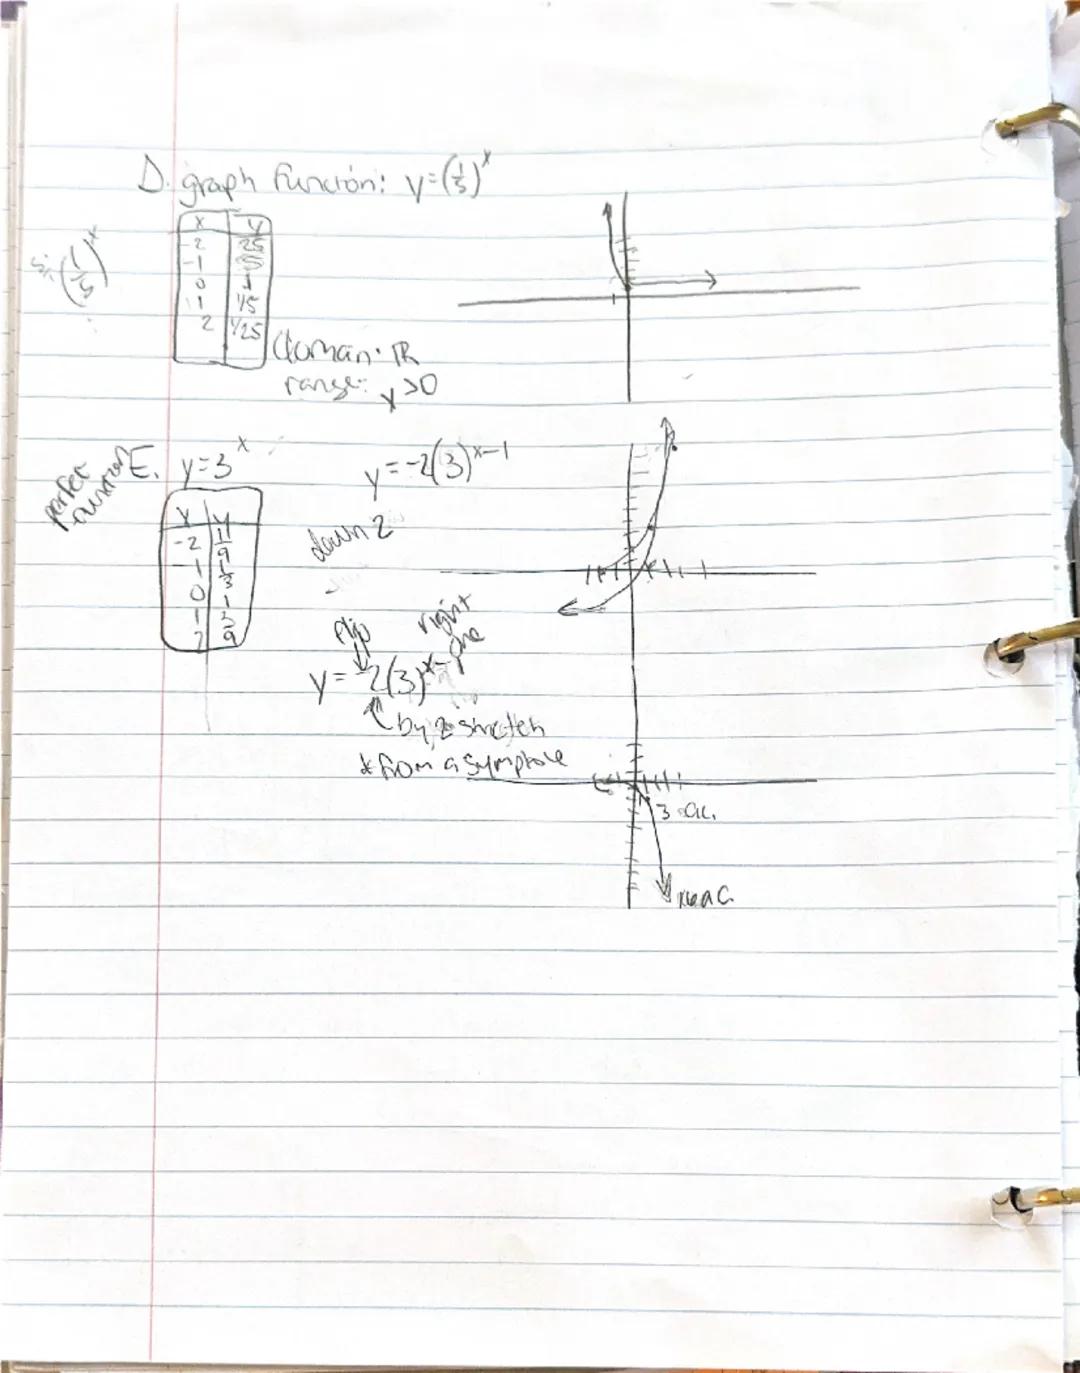 D. graph función: y=(1/5)^x
x y
-2 25
-1 5
0 1
1 1/5
2 1/25
(1/5)^x
domain: ℝ
range: y>0
E. y=3^x
y=-2(3)^x-1
x y
-2 1/9
-1 1/3
0 1
1 3
2 9
down 2
flip
right one
y=-2(3)^x-
by 2 stretch
* from asymptote
3